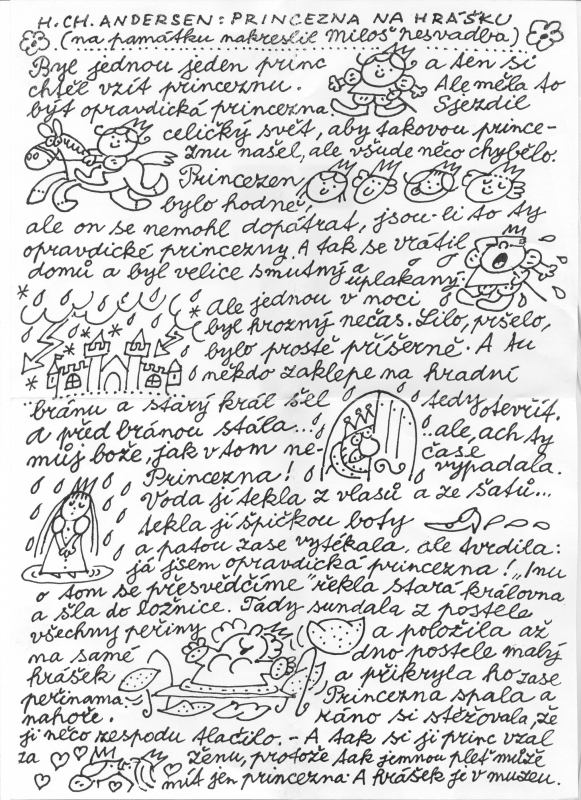 H. CH. ANDERSEN: PRINCEZNA NA HRÁŠKU
(na památku nakreslil Miloš Nesvadba)
Byl jednou jeden princ a ten si
chtěl vzít princeznu. Ale měla to
být opravdická princezna. Sjezdil
celičký svět, aby takovou prince-
znu našel, ale všude něco chybělo.
Princezen
bylo hodně,
ale on se nemohl dopátrat, jsou-li to ty
opravdické princezny. A tak se vrátil
domů a byl velice smutný a
uplakaný.
Ale jednou v noci
byl hrozný nečas. Lilo, pršelo,
bylo prostě příšerně. A tu
někdo zaklepe na hradní
bránu a starý král šel tedy otevřít.
A před bránou stála... ..ale, ach ty
můj bože, jak v tom ne- čase
Princezna! vypadala.
Voda jí tekla z vlasů a ze šatů...
tekla jí špičkou boty
a patou zase vytékala, ale tvrdila:
já jsem opravdická princezna! „Inu
o tom se přesvědčíme" řekla stará královna
a šla do ložnice. Tady sundala z postele
všechny peřiny a položila až
na samé dno postele malý
hrášek a přikryla ho zase
peřinama Princezna spala a
nahoře. ráno si stěžovala, že
ji něco zespodu tlačilo. - A tak si ji princ vzal
za ženu, protože tak jemnou pleť může
mít jen princezna. A hrášek je v muzeu.